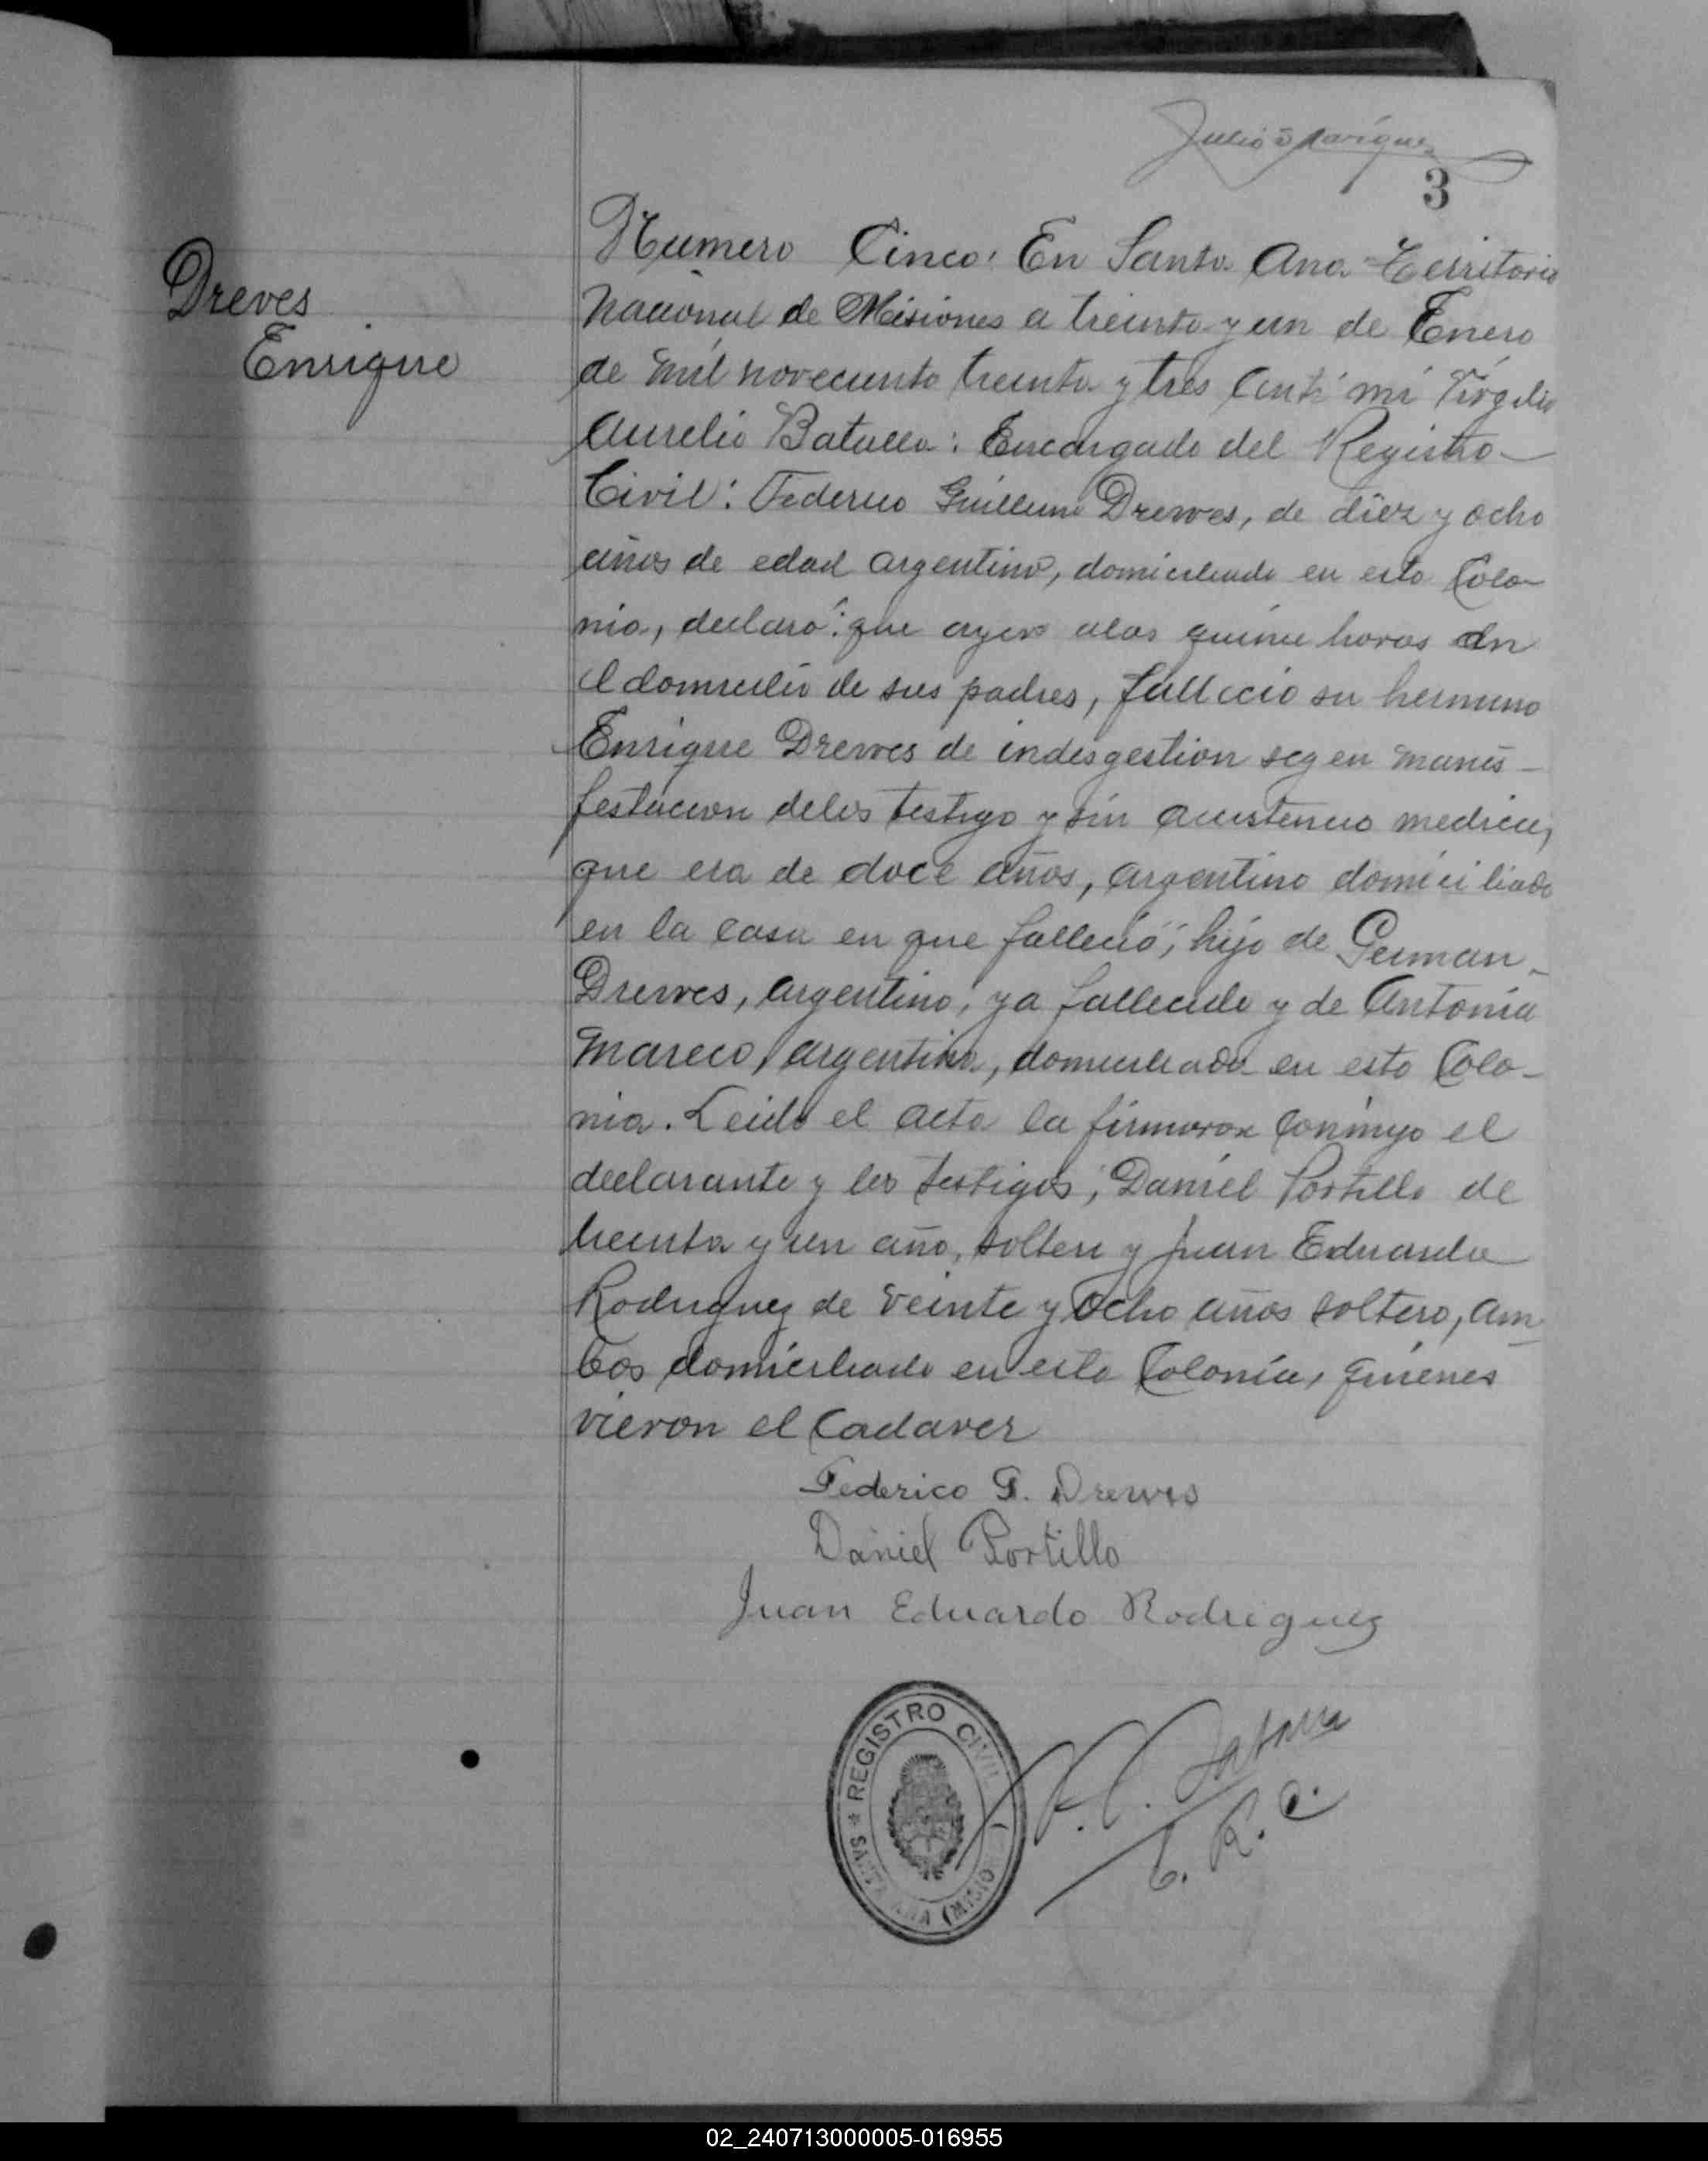 Julio
3
Dreves
Enrique
Numero Cinco: En Santa Ana Territorio
Nacional de Misiones a treinta y un de Enero
de mil novecento treinta y tres ante mi Virgilio
Aurelio Batalla: Encargado del Registro
Civil: Federico Guillermo Drewes, de diez y ocho
años de edad argentino, domiciliado en esta Colo-
nia, declaró: que ayer a las quince horas en
el domicilio de sus padres, fallecio su hermano
Enrique Drewes de indisgestion segun manis-
festacion delos testigo y sin asistencia medica,
que era de doce años, argentino domiciliado
en la casa en que falleció; hijo de German
Drewes, argentino, ya fallecido y de Antonia
Mareco, argentina, domiciliada en esta Colo-
nia. Leido el acta la firmaron conmigo el
declarante y los testigos; Daniel Portillo de
treinta y un año, soltero y Juan Eduardo
Rodriguez de veinte y ocho años soltero, am-
bos domiciliado en esta Colonia, quienes
vieron el Cadaver
Federico G. Drewes
Daniel Portillo
Juan Eduardo Rodriguez
REGISTRO CIVIL
SANTA ANA (MISIO
E. R. C.
02_240713000005-016955